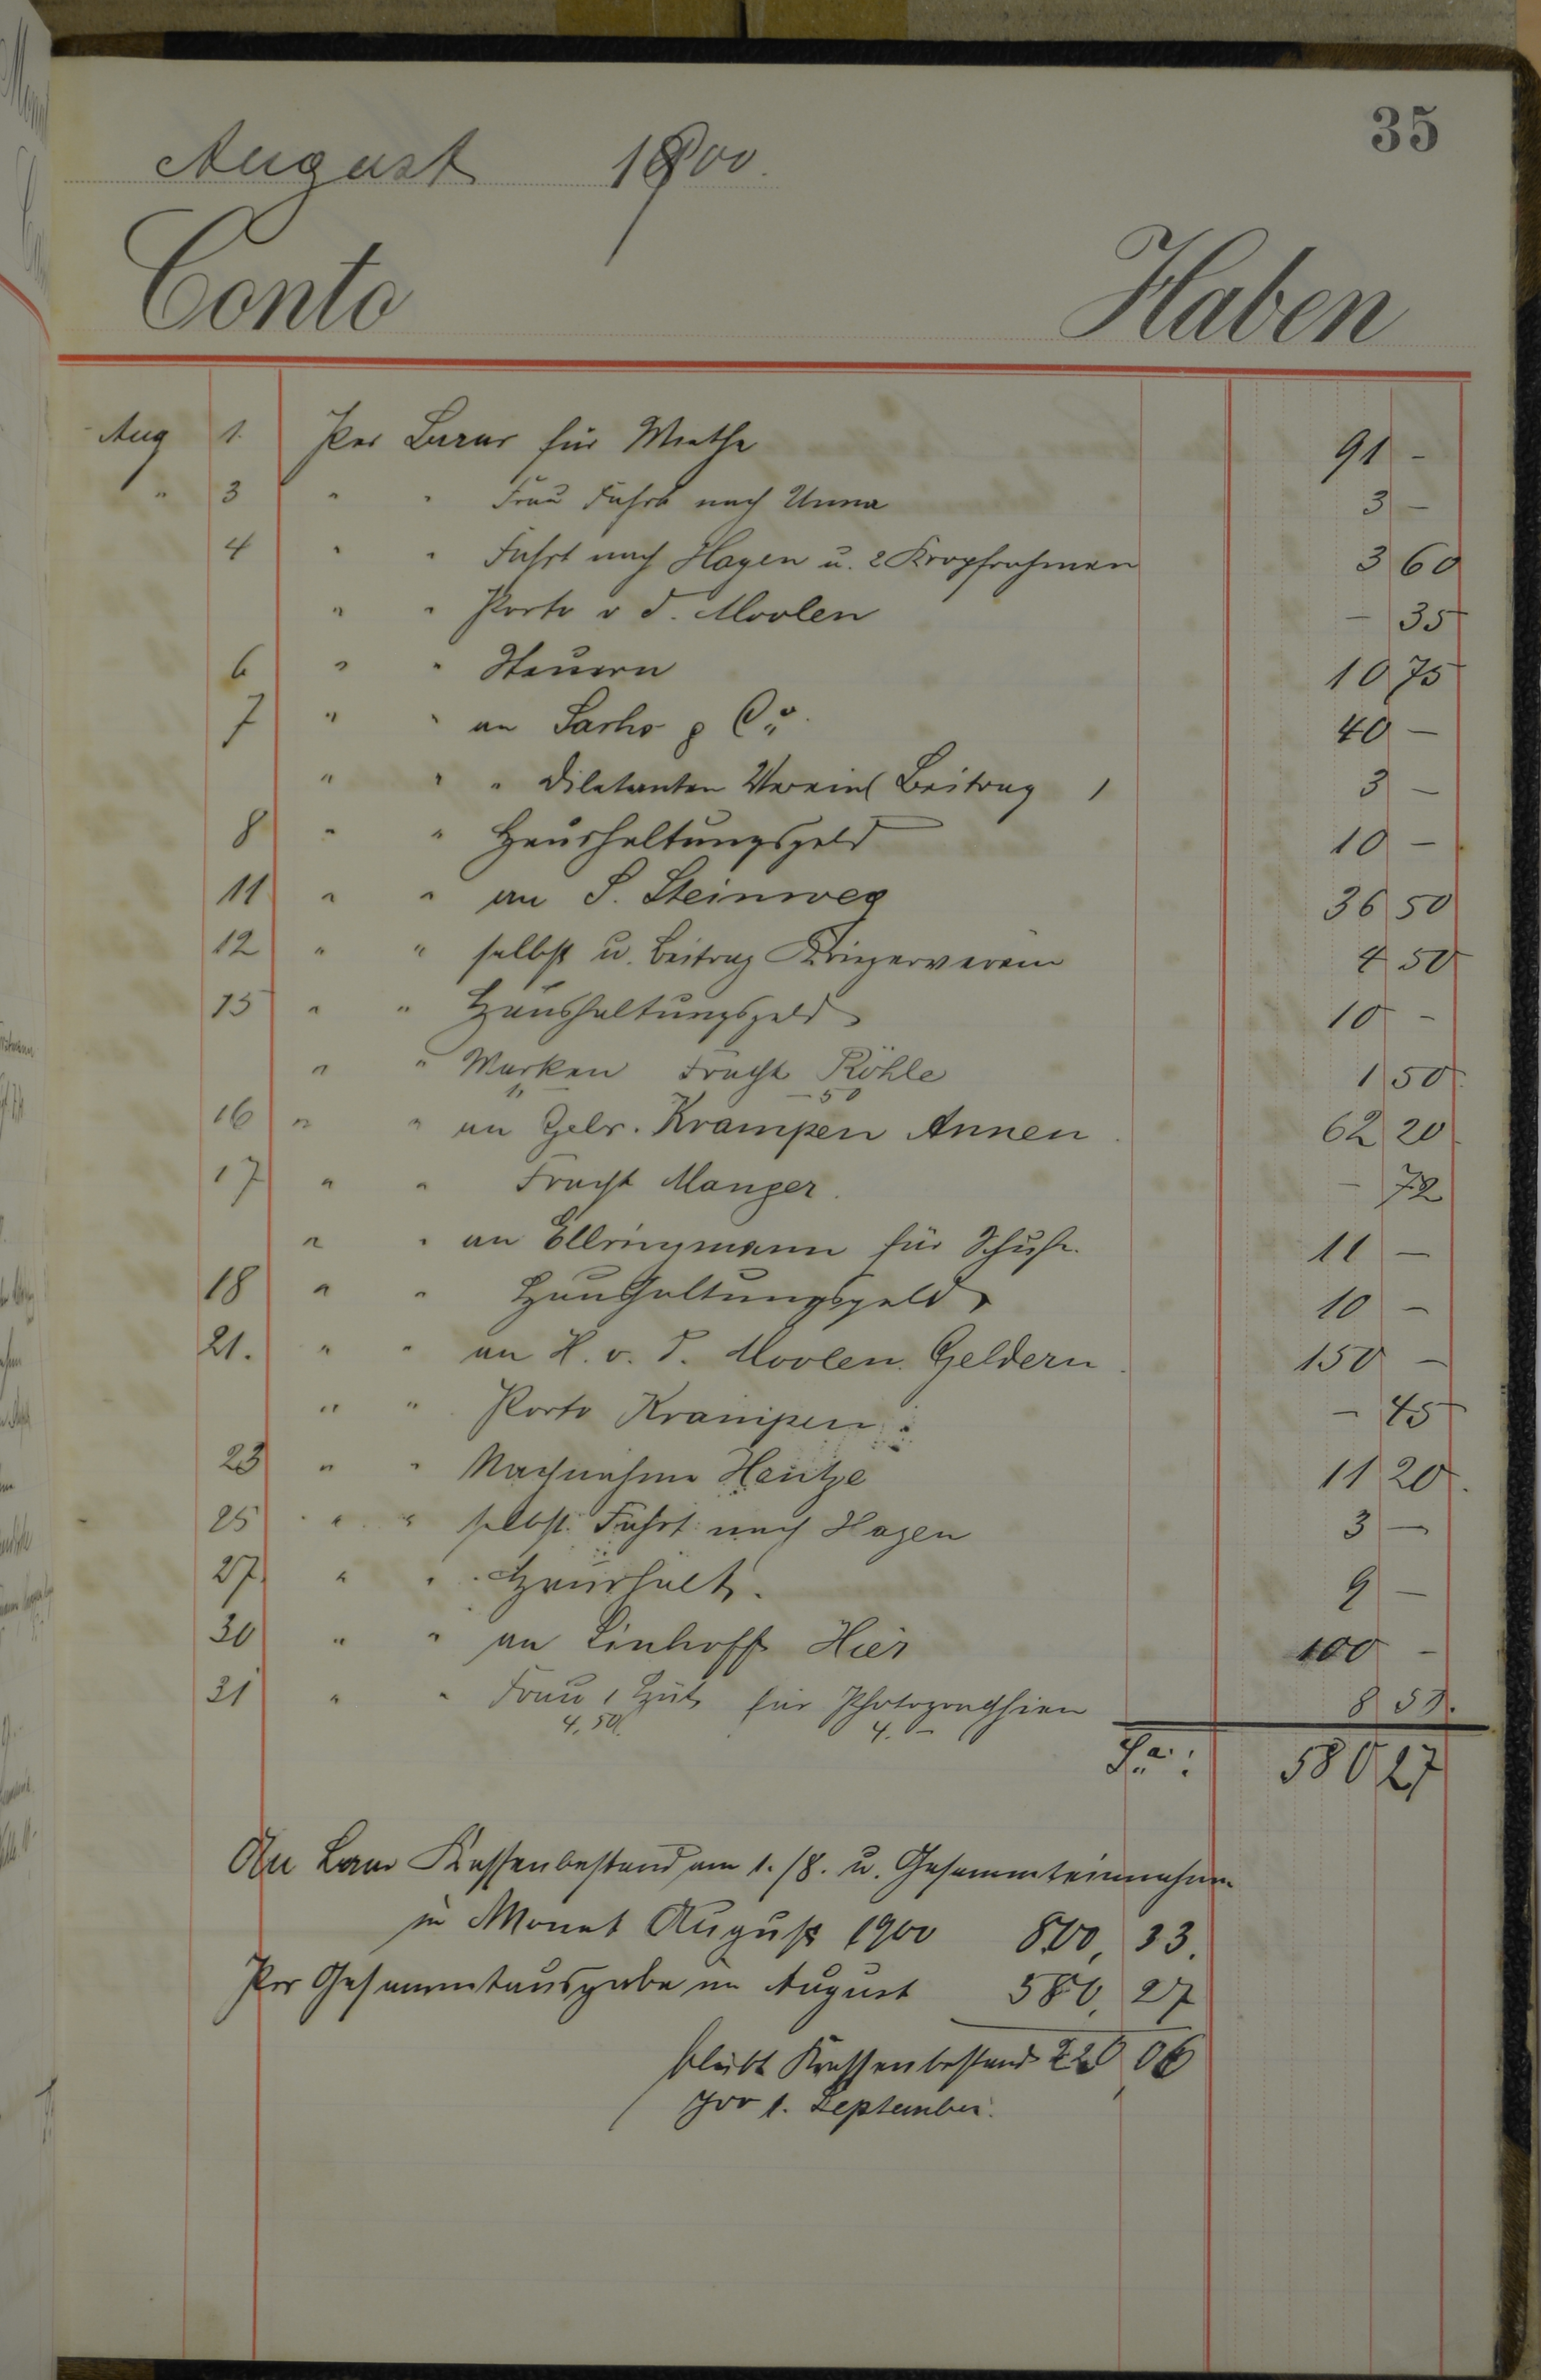 35
August 1900.
Conto Haben
Aug 1. Per Baar für Miethe 91 -
" 3 " " Frau Fahrt nach Unna 3 -
4 " " Fahrt nach Hagen u. 2 Kropfrahmen 3 60
" " Porto v d. Moolen - 35
6 " " Steuern 10 75
7 " " an Sachs & Co. 40 -
" " " Diletanten Verein Beitrag 3 -
8 " " Haushaltungsgeld 10 -
11 " " an S. Steinweg 36 50
12 " " selbst u. Beitrag Kriegerverein 4 50
15 " " Haushaltungsgeld 10 -
" " Marken Fracht Röhle 1 50
1, - 50
16 " " an Gebr. Krampen Annen 62 20
17 " " Fracht Manger. - 72
" " an Ellringmann für Schuhe. 11 -
18 " " Haushaltungsgeld 10 -
21. " " an H. v. d. Moolen. Geldern 150 -
" " Porto Krampen - 45
23 " " Nachnahme Hentze 11 20.
25 " " selbst. Fahrt nach Hagen 3 -
27 " " Haushalt. 9 -
30 " " an Linhoff Hier 100 -
31 " " Frau 1 Hut für Photographien 8 50.
4,50 4. -
Sa: 580 27
An Baar Kassenbestand am 1./8. u. Gesammteinnahme
in Monat August 1900 800, 33.
Per Gesammtausgabe im August 580, 27
bleibt Kassenbestand 220 06
pro 1. September.